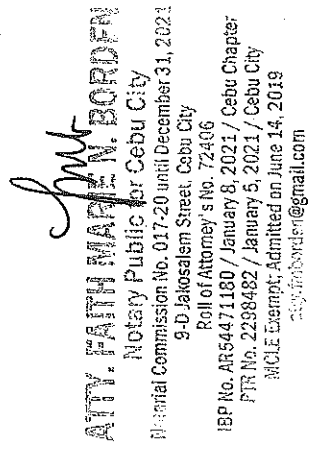 ATTY. FAITH MARIE N. BORDEN
Notary Public for Cebu City
Notarial Commission No. 017-20 until December 31, 2021
9-D Jakosalem Street, Cebu City
Roll of Attorney's No. 72406
IBP No. AR54471180 / January 8, 2021 / Cebu Chapter
PTR No. 2298482 / January 5, 2021 / Cebu City
MCLE Exempt; Admitted on June 14, 2019